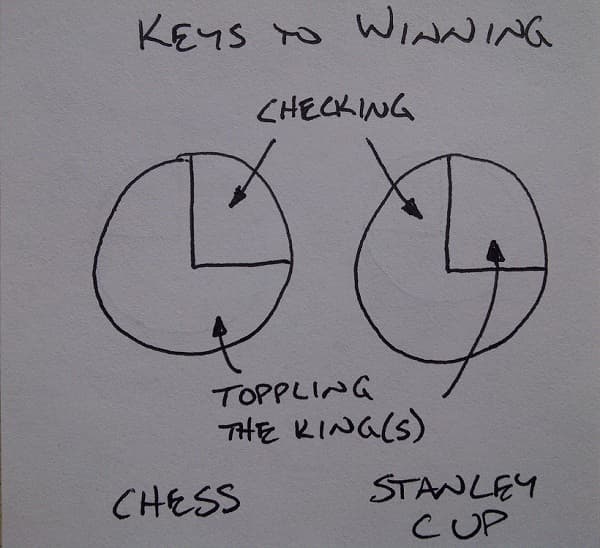 KEYS TO WINNING
CHECKING
TOPPLING
THE KING(S)
CHESS
STANLEY
CUP